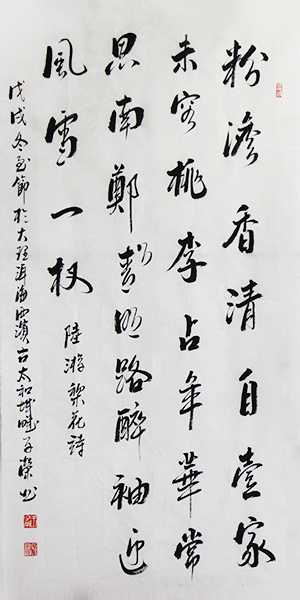 粉澹香清自壹家
未容桃李占年華常
思南鄭清明路醉袖迎
風雪一杈
陸游梨花詩
戊戌冬至節於大理洱海西濱古太和城畔子榮书